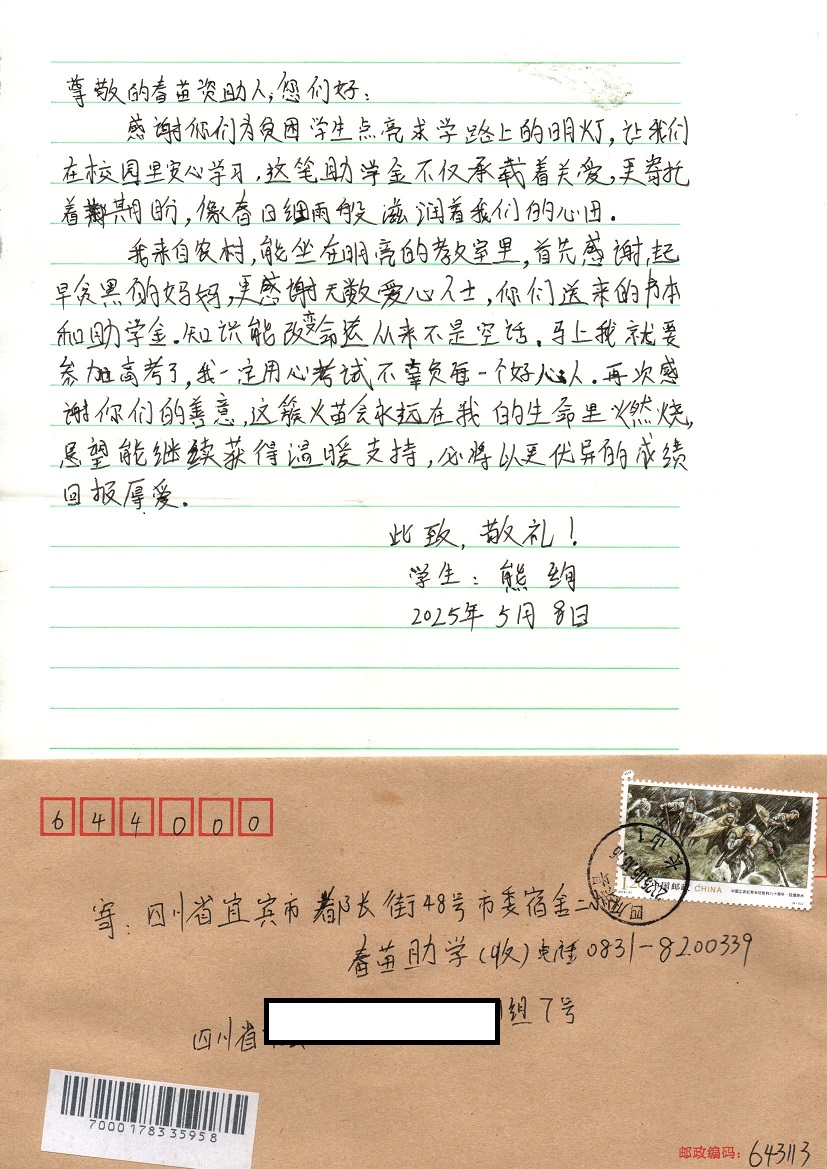 尊敬的春苗资助人,您们好:
感谢你们为贫困学生点亮求学路上的明灯,让我们
在校园里安心学习,这笔助学金不仅承载着关爱,更寄托
着期盼,像春日细雨般滋润着我们的心田。
我来自农村,能坐在明亮的教室里,首先感谢,起
早贪黑的妈妈,更感谢无数爱心人士,你们送来的书本
和助学金.知识能改变命运从来不是空话,马上我就要
参加高考了,我一定用心考试不辜负每一个好心人.再次感
谢你们的善意,这簇火苗会永远在我的生命里燃烧,
恳望能继续获得温暖支持,必将以更优异的成绩
回报厚爱。
此致,敬礼!
学生:熊绚
2025年5月8日
644000
120 中国邮政 CHINA
寄:四川省宜宾市都长街48号市委宿舍二
春苗助学(收)电话0831-8200339
四川省
组7号
7000178335958
邮政编码:643113